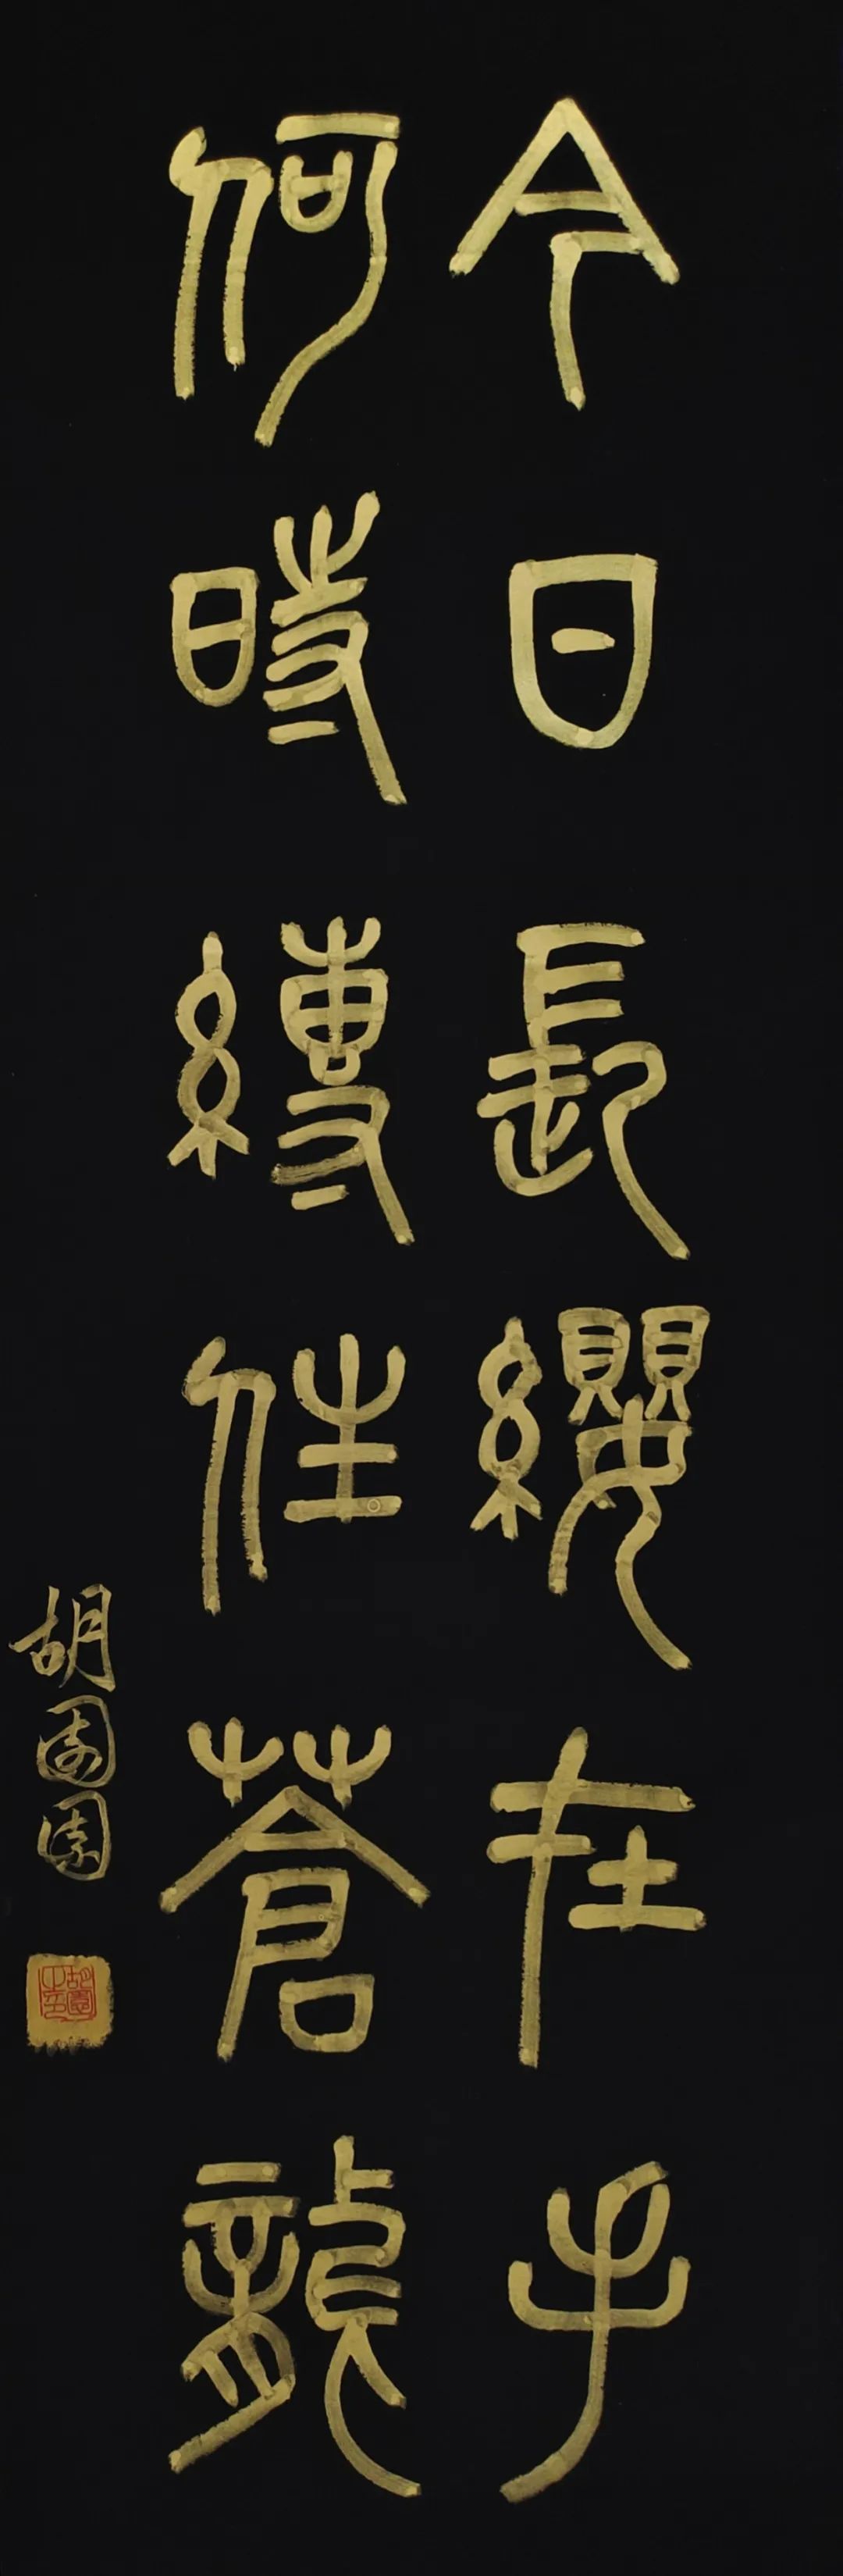 今日長纓在手
何時縛住蒼龍
胡園園